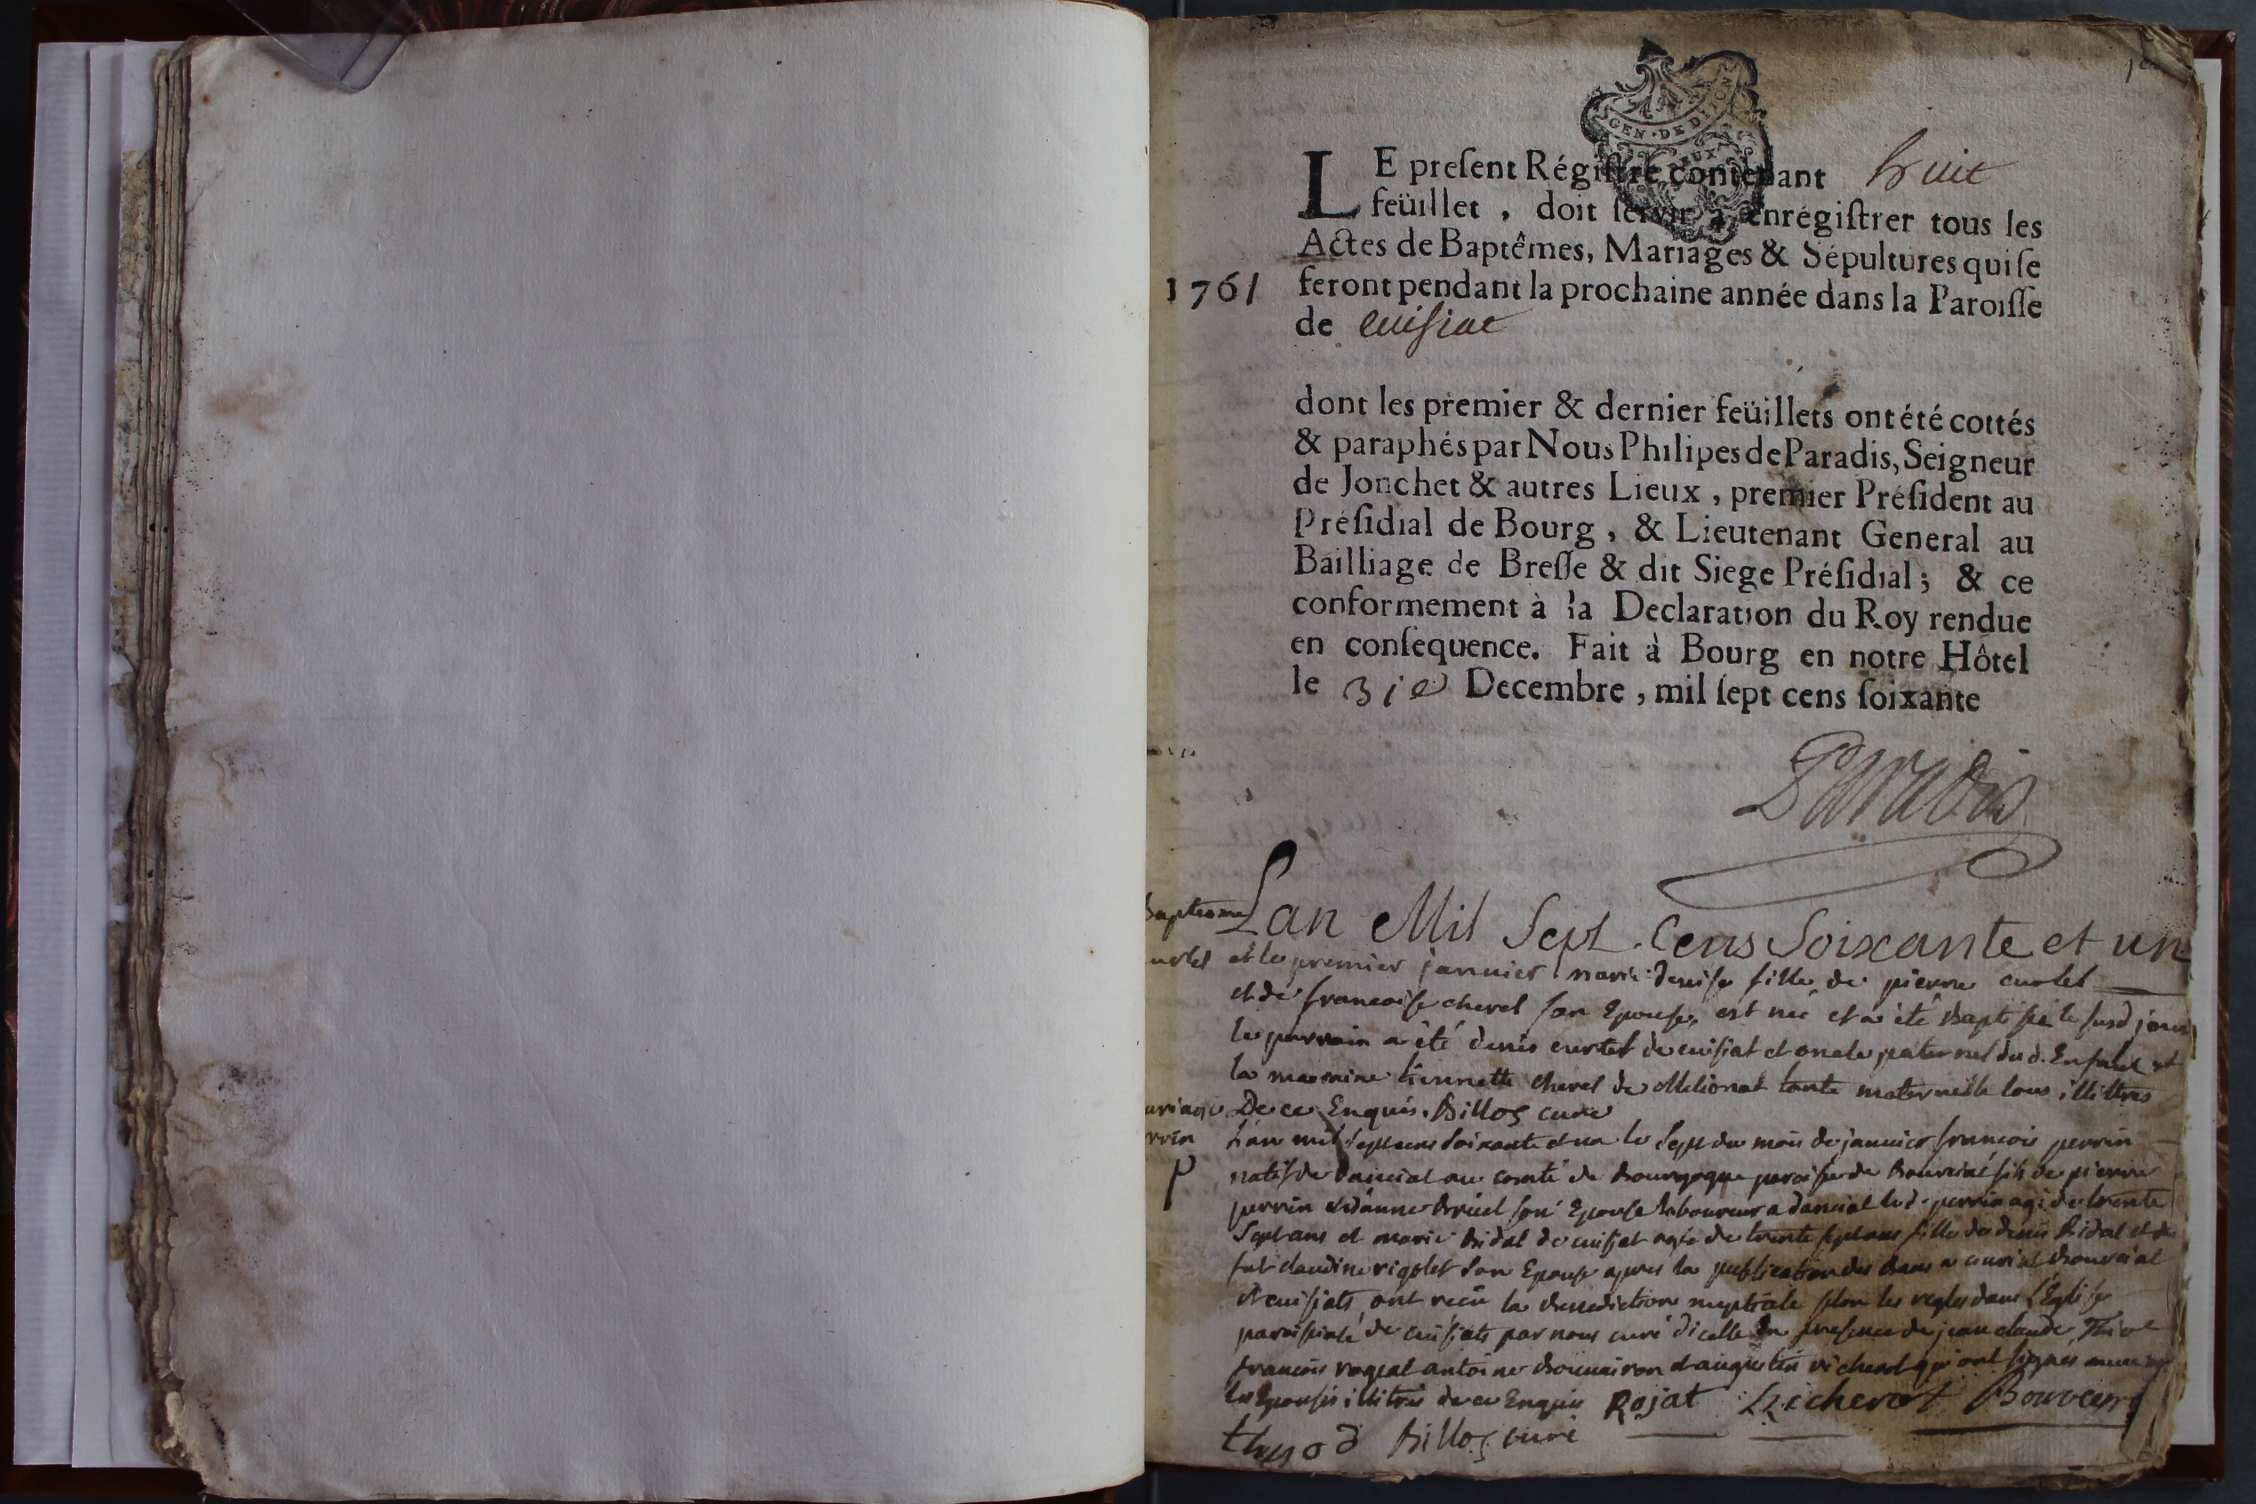 1er
GEN · DE DIJON
LE preſent Régiſtre contenant huit
feüillet , doit ſervir à enrégiſtrer tous les
Actes de Baptêmes, Mariages & Sépultures qui ſe
1761 feront pendant la prochaine année dans la Paroiſſe
de cuisiat
dont les premier & dernier feüillets ont été cottés
& paraphés par Nous Philipes de Paradis, Seigneur
de Jonchet & autres Lieux , premier Préſident au
Préſidial de Bourg , & Lieutenant General au
Bailliage de Breſſe & dit Siege Préſidial ; & ce
conformement à la Declaration du Roy rendue
en conſequence. Fait à Bourg en notre Hôtel
le 31e Decembre , mil ſept cens ſoixante
Paradis
Baptesme Lan Mil Sept Cens Soixante et un
et le premier janvier marie denise fille de pierre curtet
et de francoise chevet son Epouse, est née et a été baptisée le susd jour
le parrain a été denis curtet de cuisiat et oncle paternel dud. Enfant et
la marraine tiennette chevet de tante maternelle tous illitrés
De ce Enquis. Billoz curé
L'an mil septcens soixante et un le sept du mois de janvier francois perrin
natif de au comté de bourgogne paroisse de fils de pierre
perrin et d'anne son Epouse laboureur a led. perrin agé de trente
Sept ans et marie bidal de cuisiat agée de trente sept ans fille de denis bidal et de
fut claudine rigolet son Epouse apres la publication des bans a
et cuisiat, ont reçu la benediction nuptiale selon les regles dans l'Eglise
paroissiale de cuisiat par nous curé dicelle en presence de jean claude
francois antoine et augustin vicherot qui ont signés
les Epousés illitrés de ce Enquis Rojat Vicherot
P
Billoz curé